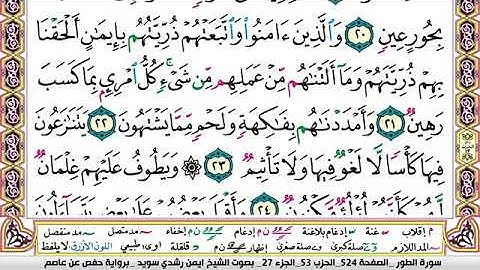 بِحُورٍ عِينٍ ٢٠ وَٱلَّذِينَ ءَامَنُوا۟ وَٱتَّبَعَتْهُمْ ذُرِّيَّتُهُم بِإِيمَٰنٍ أَلْحَقْنَا
بِهِمْ ذُرِّيَّتَهُمْ وَمَآ أَلَتْنَٰهُم مِّنْ عَمَلِهِم مِّن شَىْءٍ ۚ كُلُّ ٱمْرِئٍۭ بِمَا كَسَبَ
رَهِينٌ ٢١ وَأَمْدَدْنَٰهُم بِفَٰكِهَةٍ وَلَحْمٍ مِّمَّا يَشْتَهُونَ ٢٢ يَتَنَٰزَعُونَ
فِيهَا كَأْسًا لَّا لَغْوٌ فِيهَا وَلَا تَأْثِيمٌ ٢٣ ۞ وَيَطُوفُ عَلَيْهِمْ غِلْمَانٌ
لَّهُمْ كَأَنَّهُمْ لُؤْلُؤٌ مَّكْنُونٌ ٢٤ وَأَقْبَلَ بَعْضُهُمْ عَلَىٰ بَعْضٍ يَتَسَآءَلُونَ
م إقلاب غنة إدغام بلاغنة إدغام إخفاء مد متصل مد منفصل
المد اللازم صلة كبرى صلة صغرى إظهار قلقلة طبيعي اللون الأزرق لا يلفظ
سورة الطور _الصفحة 524_الحزب 53_الجزء 27_ بصوت الشيخ ايمن رشدي سويد _برواية حفص عن عاصم